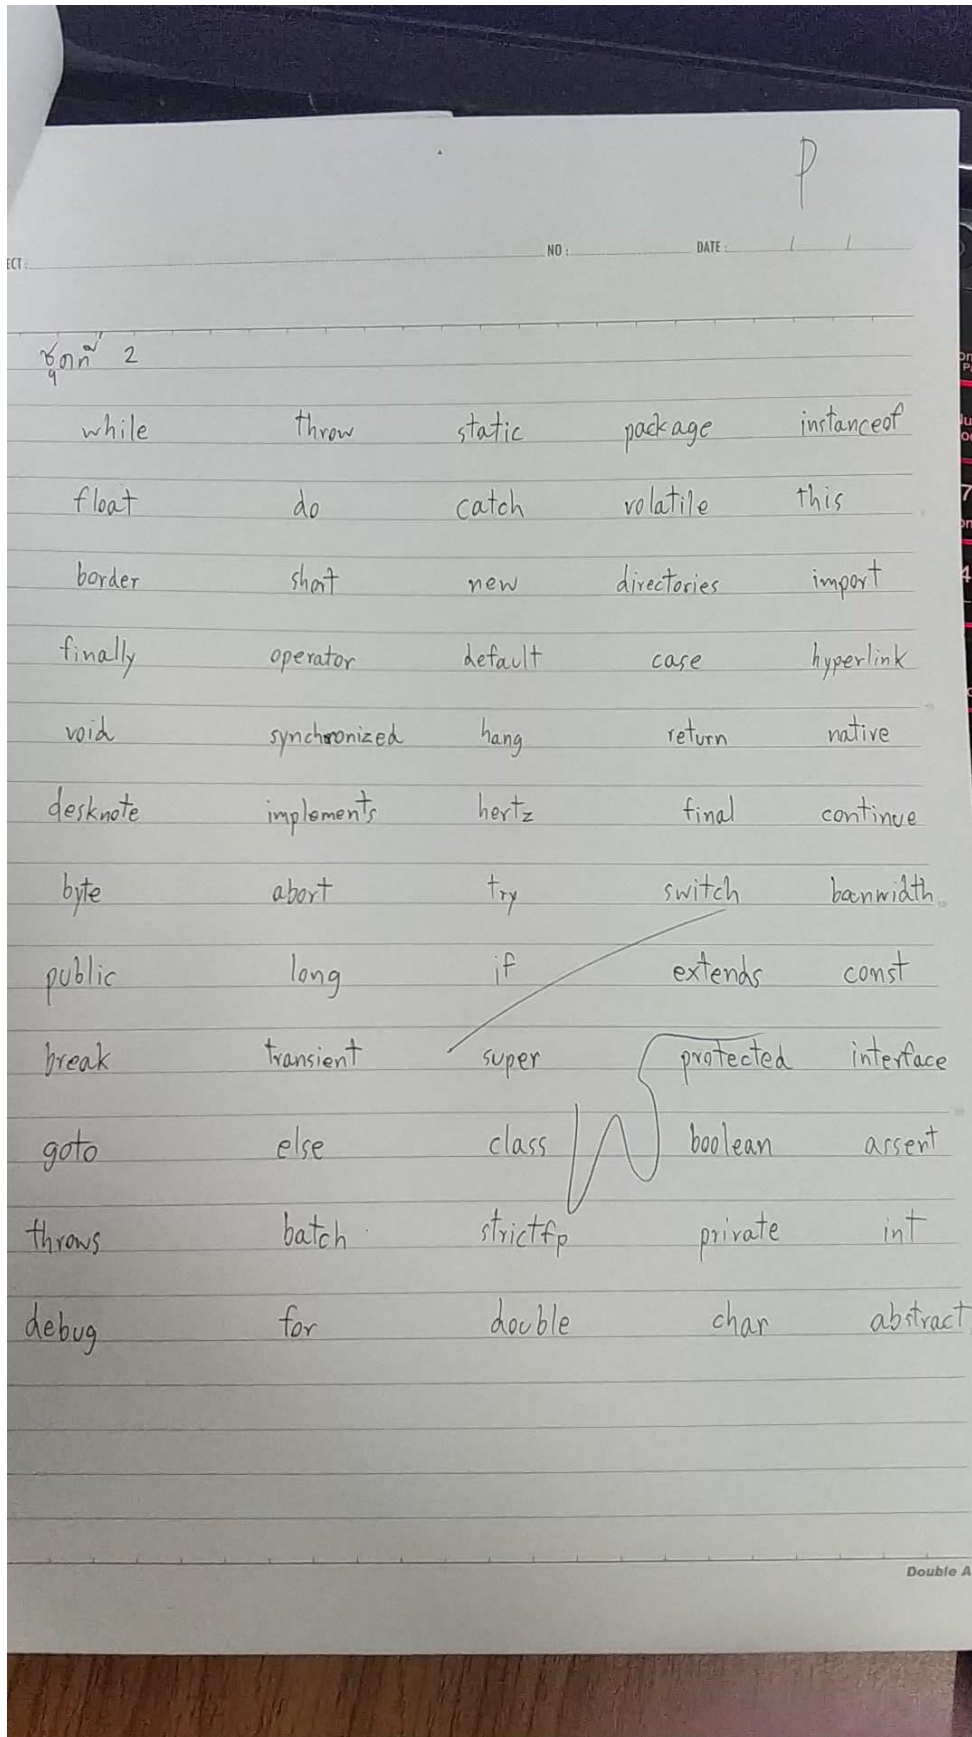 P
ECT : NO : DATE : / /
ชุดที่ 2
while throw static package instanceof
float do catch volatile this
border short new directories import
finally operator default case hyperlink
void synchronized hang return native
desknote implements hertz final continue
byte abort try switch banwidth
public long if extends const
break transient super protected interface
goto else class boolean assert
throws batch strictfp private int
debug for double char abstract
Double A